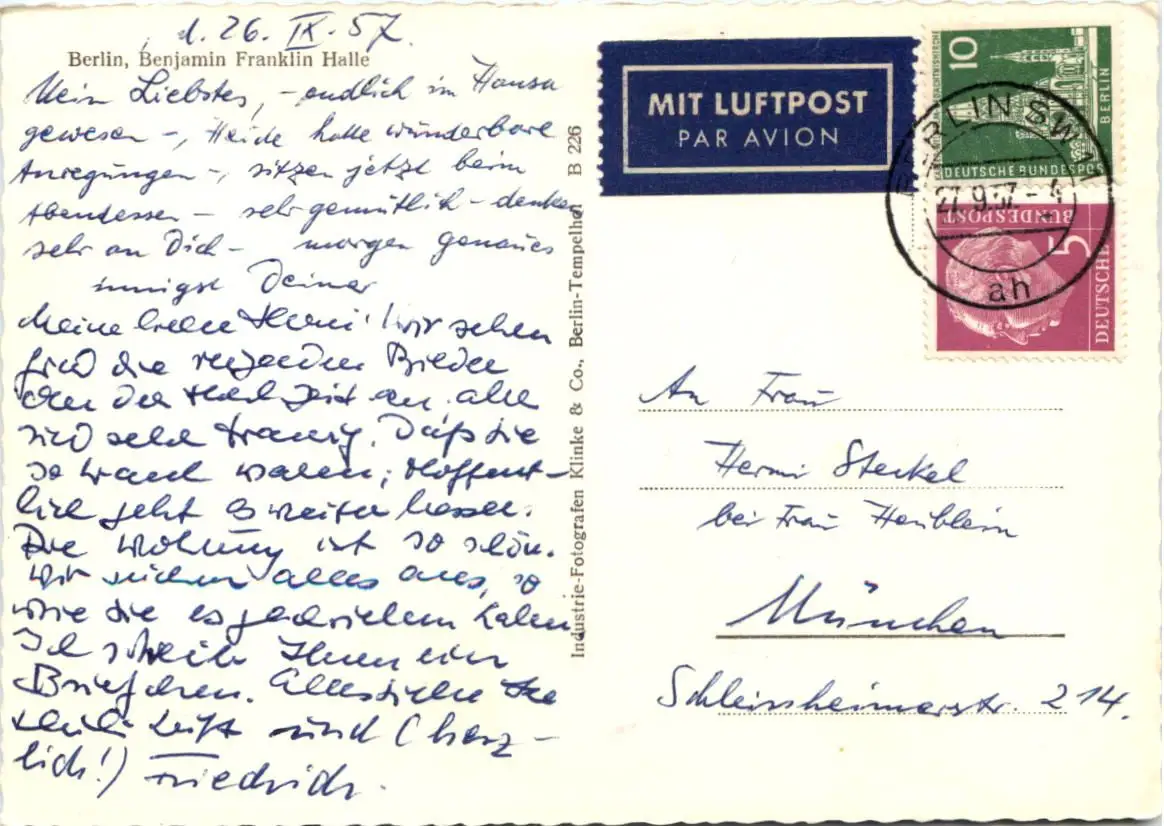 d. 26. IX. 57.
Berlin, Benjamin Franklin Halle
Mein Liebstes, – endlich im Hansa
gewesen –, Heide hatte wunderbare
Anregungen –, sitzen jetzt beim
Abendessen – sehr gemütlich – denken
sehr an Dich – morgen genaues
innigst Deiner
Meine liebe Hermi! Wir sehen
die Bilder
an, alle
sind sehr traurig, Daß Sie
so krank waren; Hoffent-
lich geht es weiter besser.
Die Wohnung ist so schön.
wir suchen alles aus, so
wie Sie es geschrieben haben
Ich schreibe Ihnen ein
Briefchen. Allerherzliche
und (herz-
lich!) Friedrich.
Industrie-Fotografen Klinke & Co., Berlin-Tempelhof B 226
MIT LUFTPOST
PAR AVION
10
BERLIN
DEUTSCHE BUNDESPOST
BERLIN SW 11
27.9.57.-4
ah
5
DEUTSCHE
BUNDESPOST
An Frau
Hermi Steckel
bei Frau Heublein
München
Schleissheimerstr. 214.